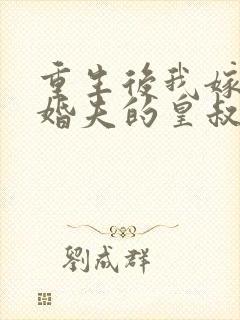 重生後我嫁
婚夫的皇叔
劉成群